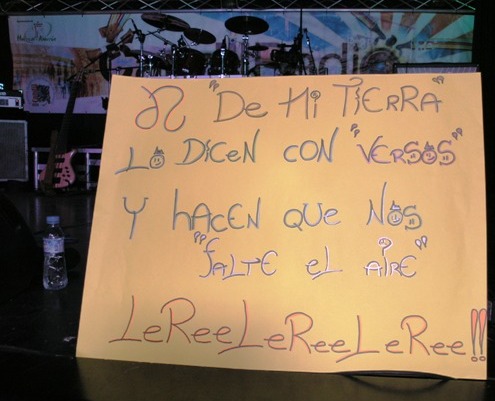 "De Mi TiERRA"
Lo DiCEN CON "VERSOS"
Y hACEN QUE NOS
"fALTE EL AiRE"
LeReeLeReeLeRee!!